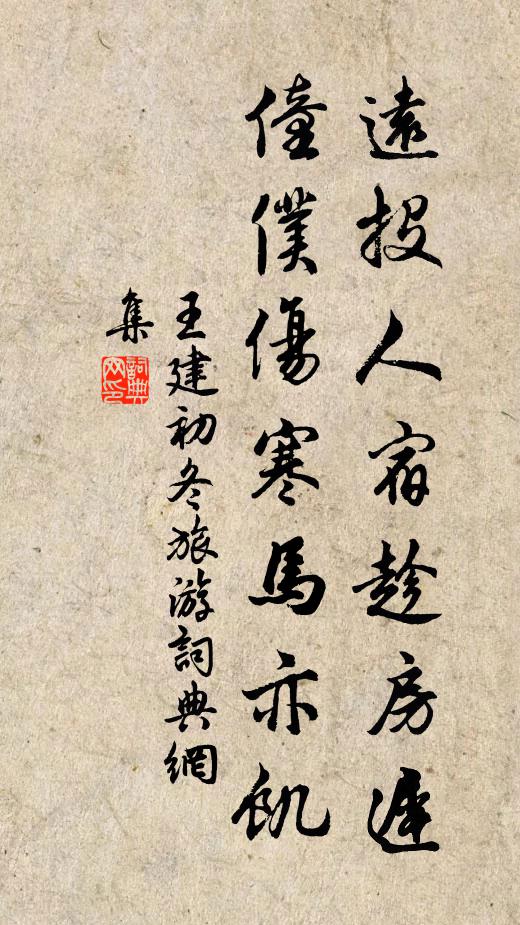 遠投人宿趁房遲
僮僕傷寒馬亦飢
王建初冬旅游詞典網
集
詞典网印